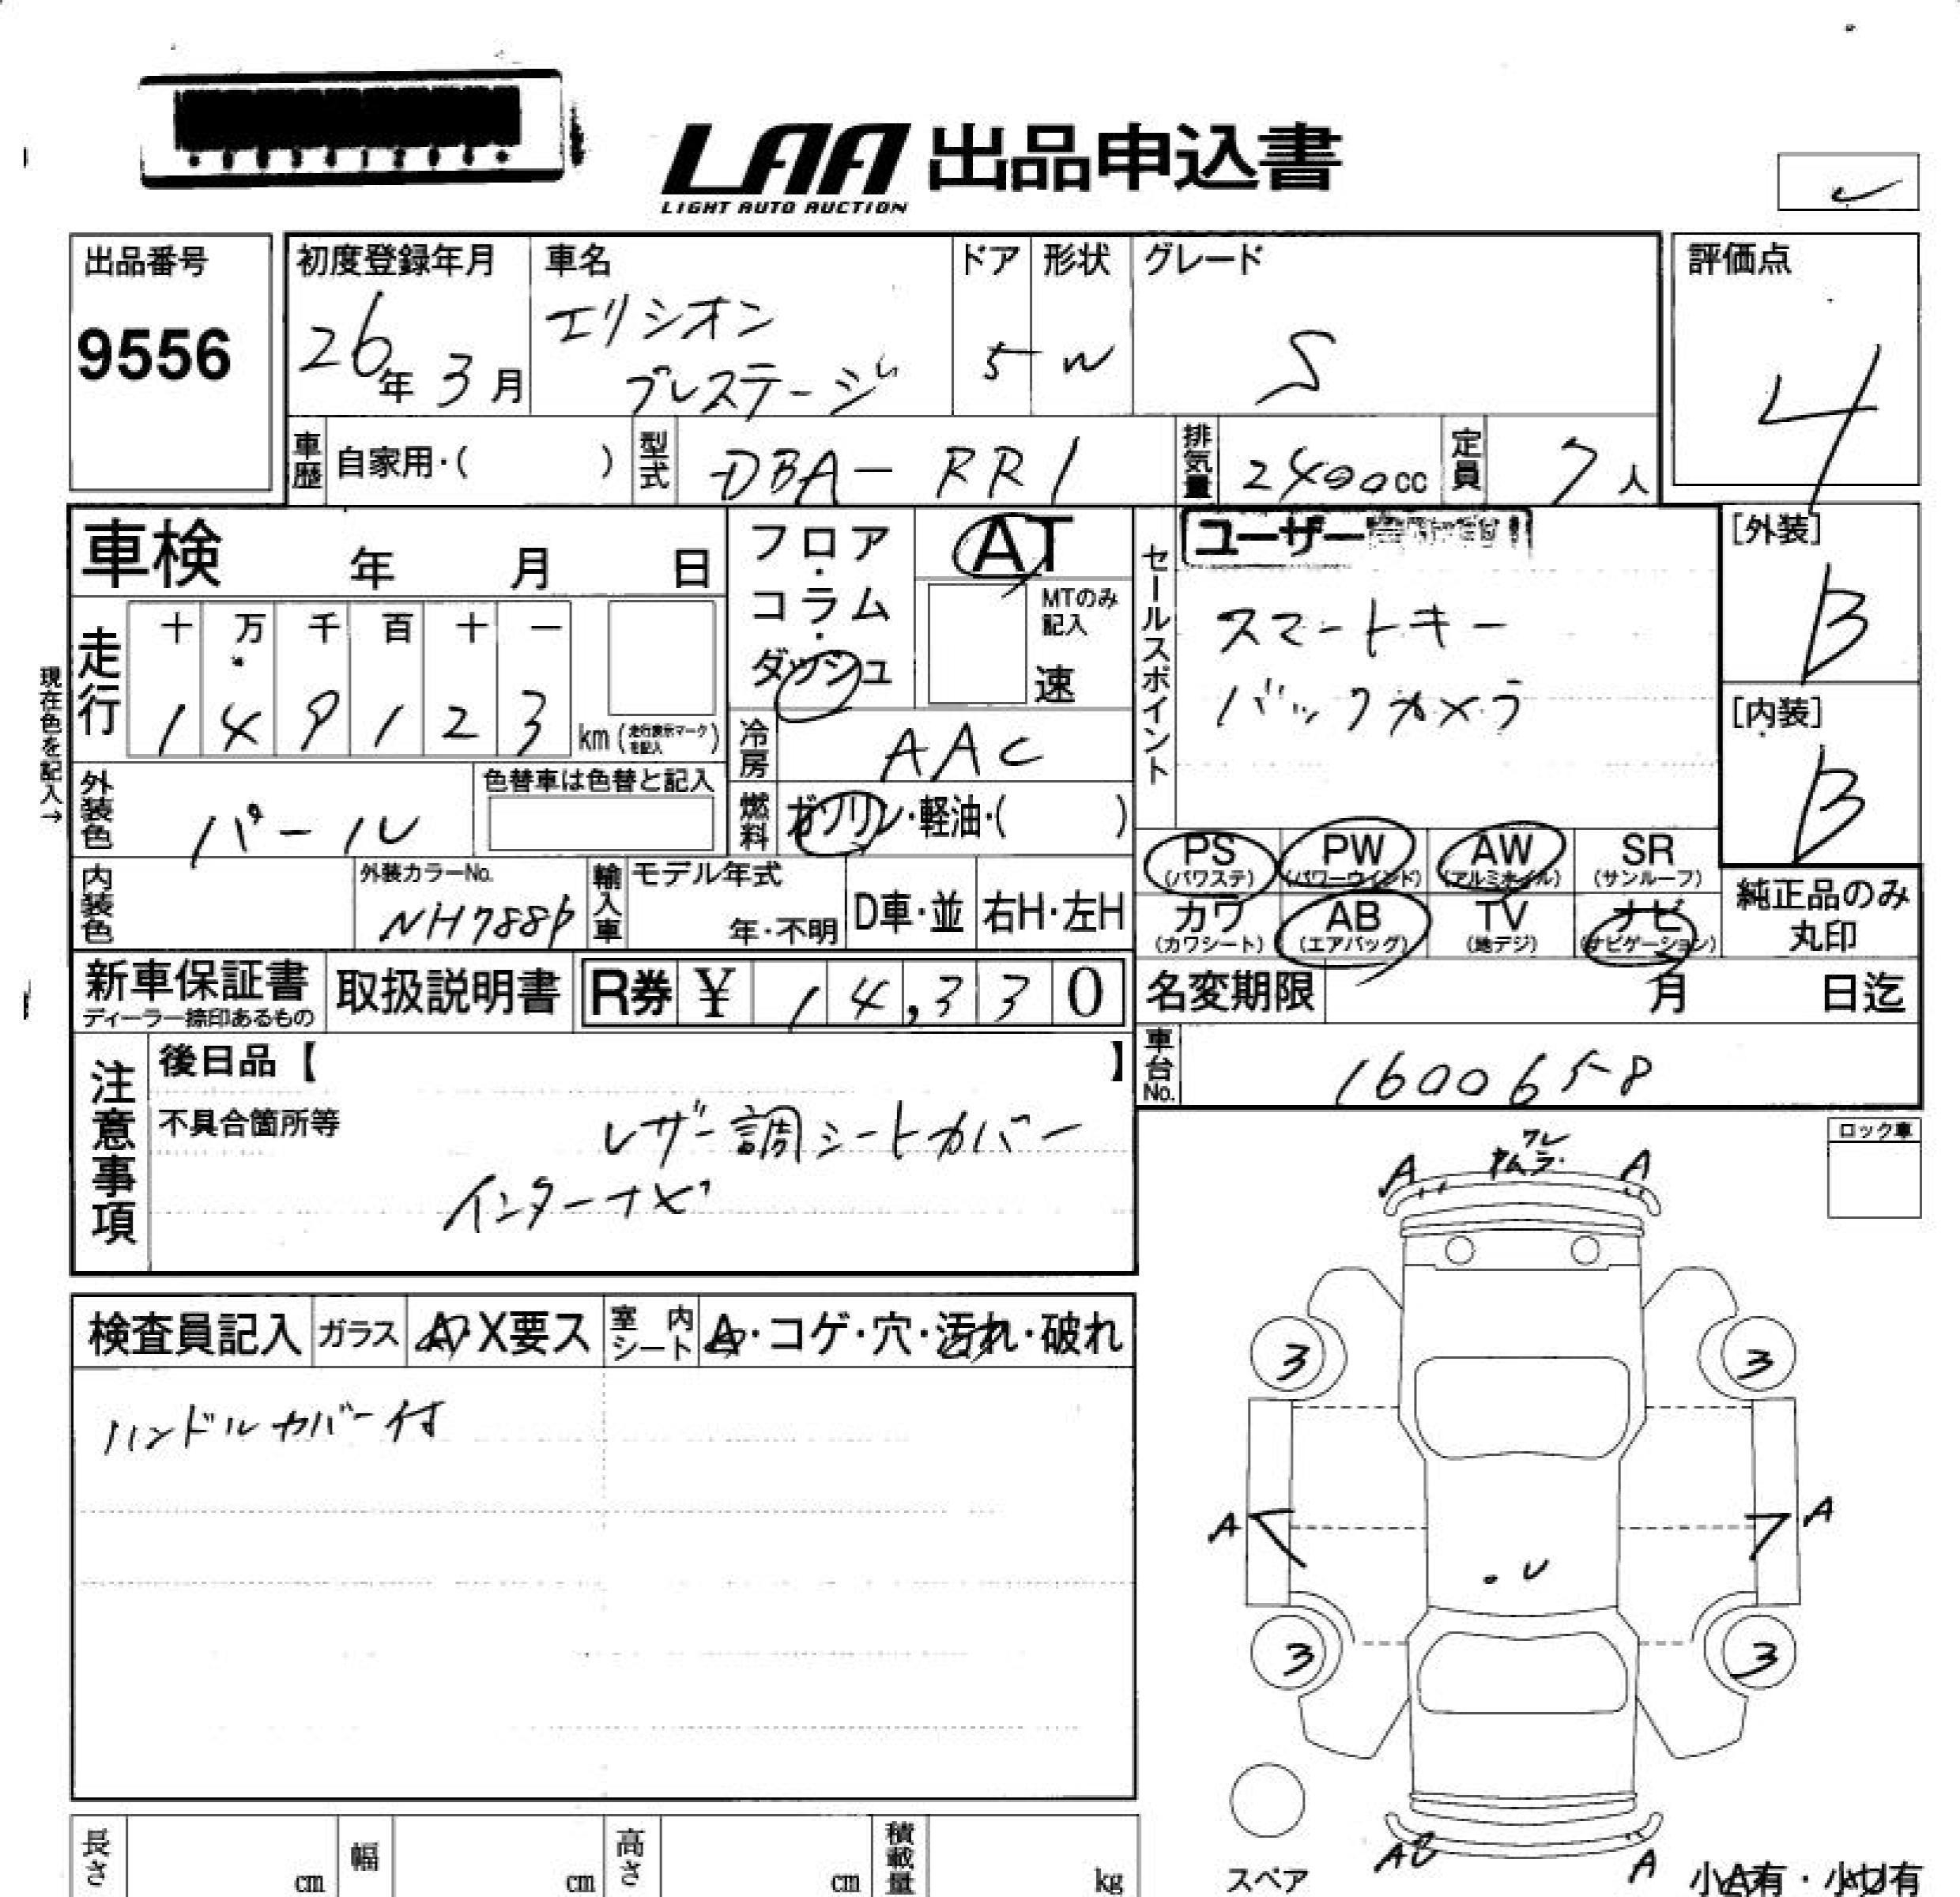 LAA 出品申込書
LIGHT AUTO AUCTION
出品番号
9556
初度登録年月
26年 3月
車名
エリシオン
プレステージ
ドア
5
形状
W
グレード
S
評価点
4
車歴 自家用・( )
型式 DBA-RR1
排気量 2400cc
定員 7人
車検 年 月 日
走行
十 万 千 百 十 一
1 4 9 1 2 3
km (走行表示マークを記入)
現在色を記入→
フロア・コラム・ダッシュ
AT
MTのみ記入
速
冷房 AAC
燃料 ガソリン・軽油・( )
外装色 パール
色替車は色替と記入
内装色
外装カラーNo.
NH788P
輸入車
モデル年式
年・不明
D車・並
右H・左H
セールスポイント
ユーザー
スマートキー
バックカメラ
[外装]
B
[内装]
B
PS (パワステ)
PW (パワーウインド)
AW (アルミホイル)
SR (サンルーフ)
カワ (カワシート)
AB (エアバッグ)
TV (地デジ)
ナビ (ナビゲーション)
純正品のみ丸印
新車保証書
ディーラー捺印あるもの
取扱説明書
R券 ¥ 14,330
名変期限 月 日迄
車台No. 1600658
注意事項
後日品【 】
不具合箇所等
レザー調シートカバー
インターナビ
ロック車
検査員記入
ガラス
A・X要ス
室内シート
A・コゲ・穴・汚れ・破れ
ハンドルカバー付
A
ワレ
A
3
3
A
A
・U
3
3
A
スペア
小A有・小U有
長さ cm
幅 cm
高さ cm
積載量 kg